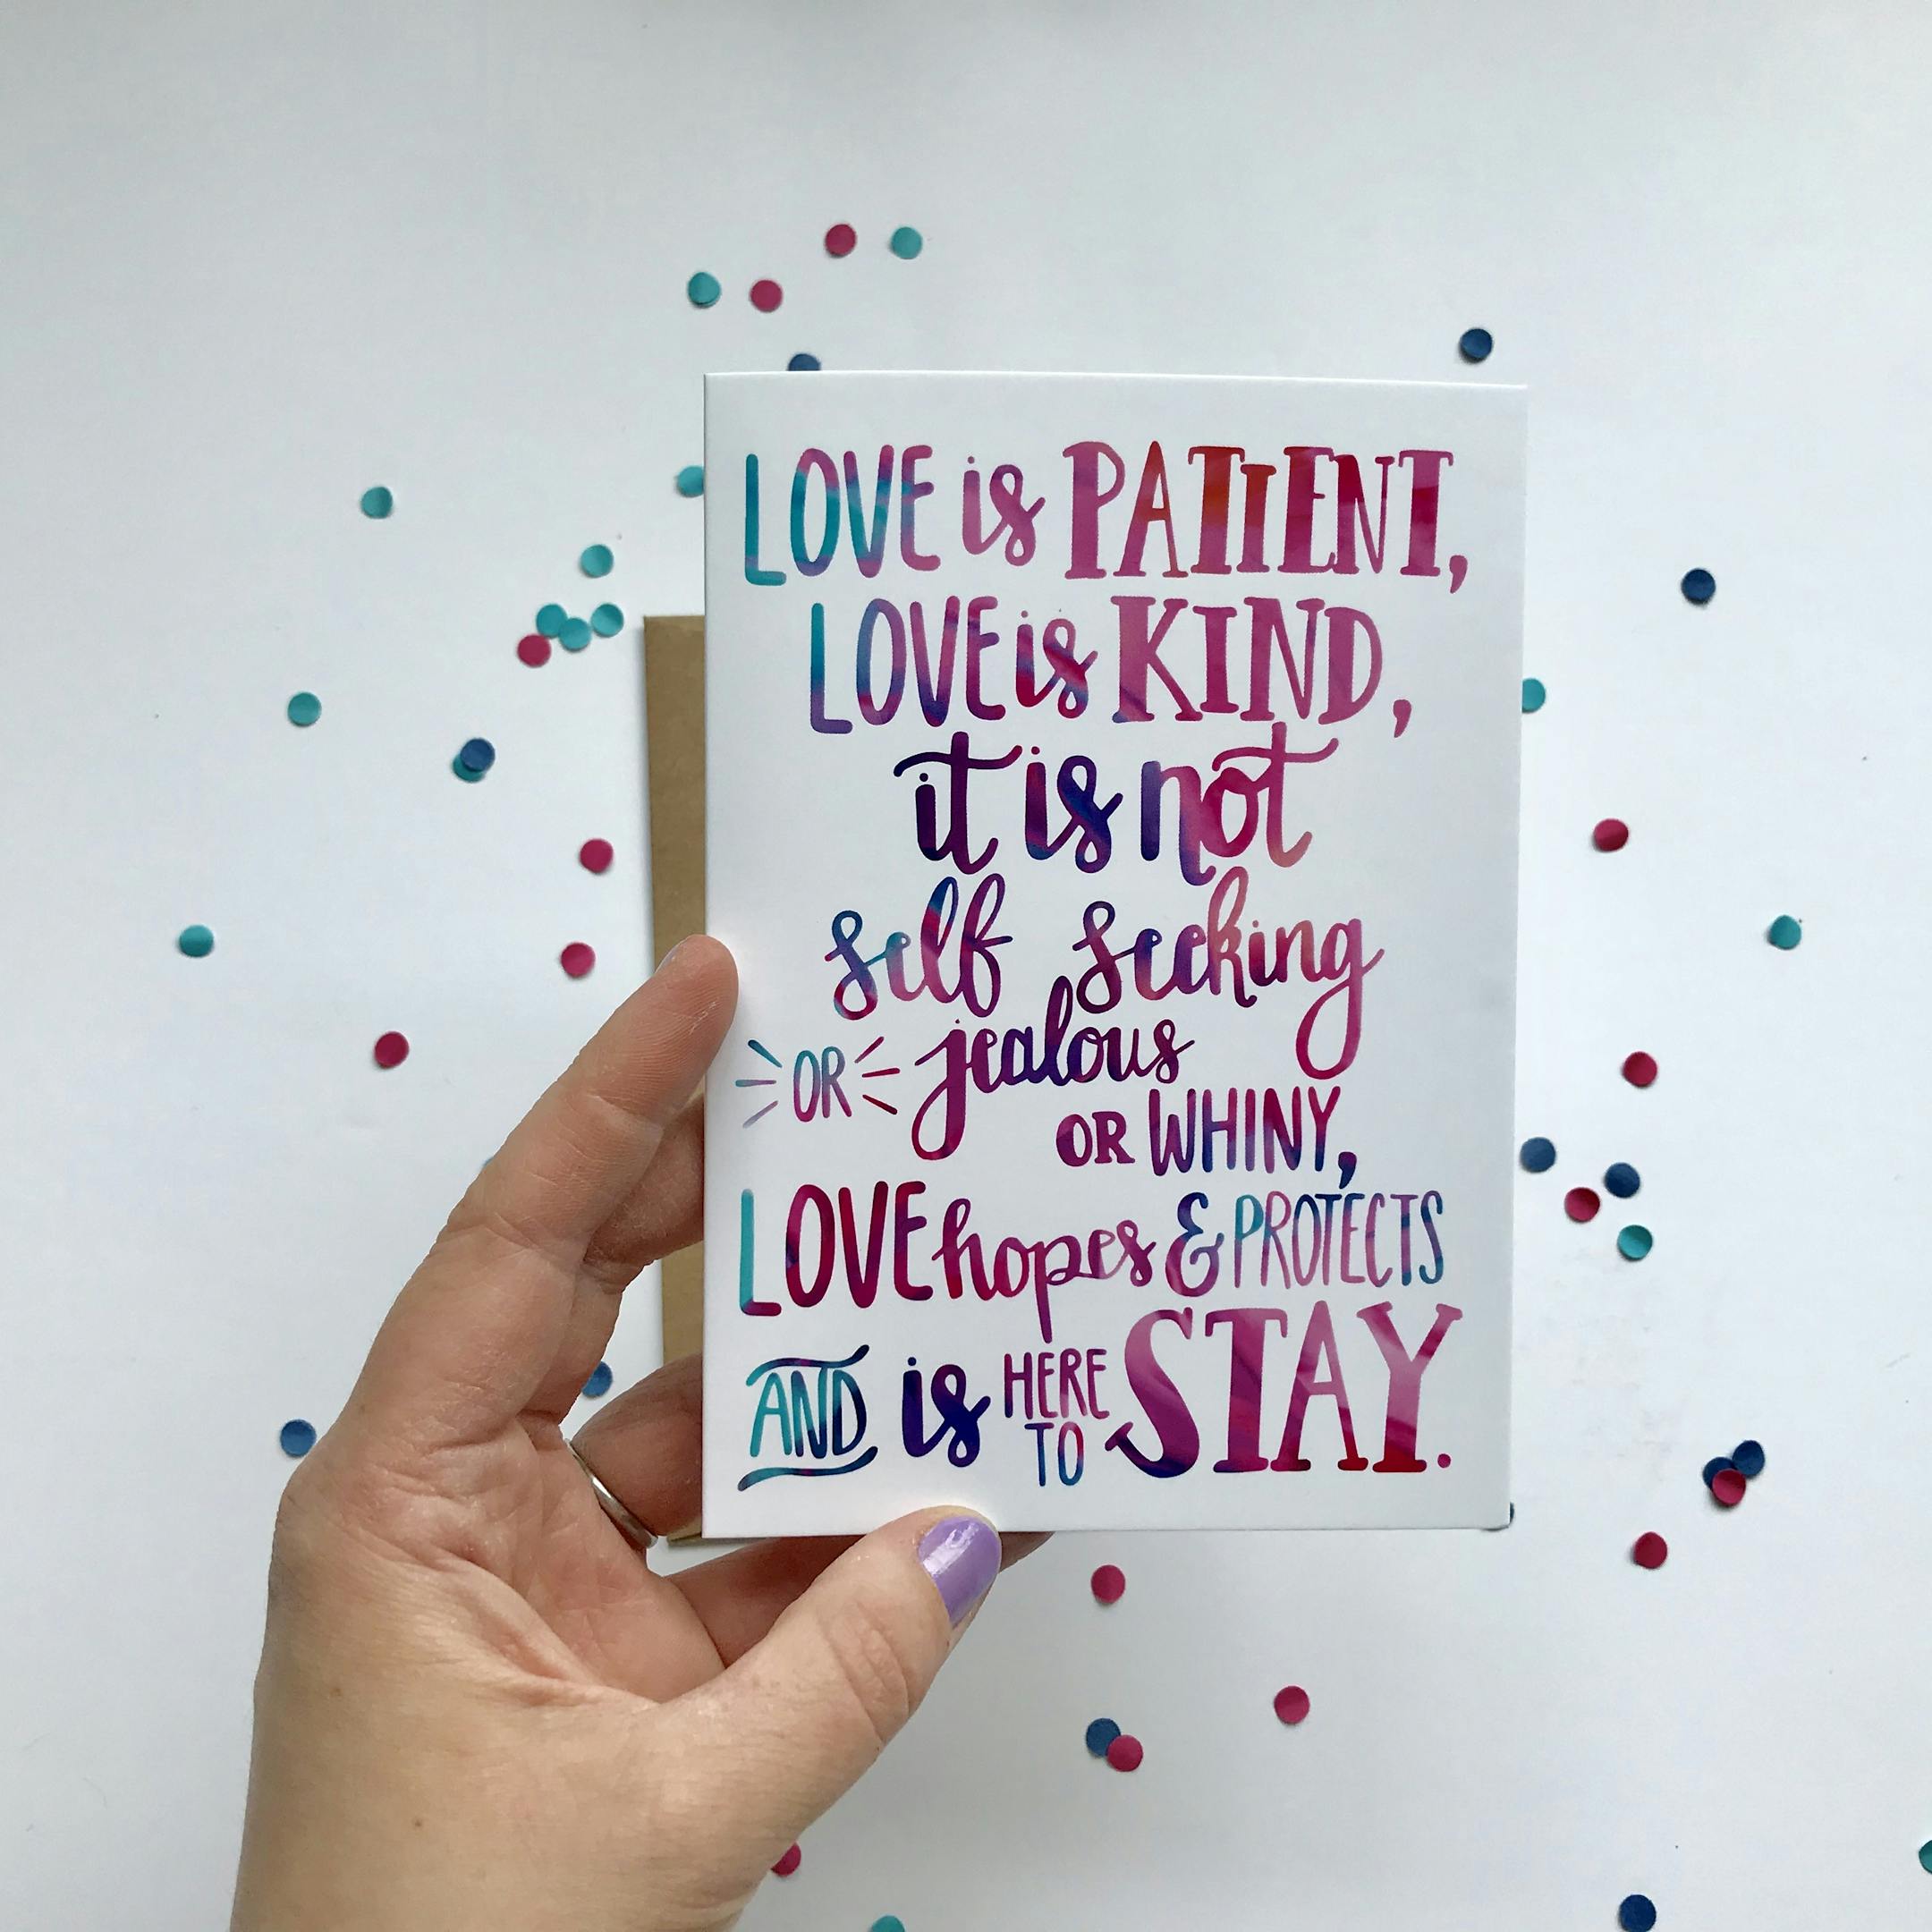 LOVE is PATIENT,
LOVE is KIND,
it is not
self seeking
OR jealous
OR WHINY,
LOVE hopes & PROTECTS
AND is HERE TO STAY.